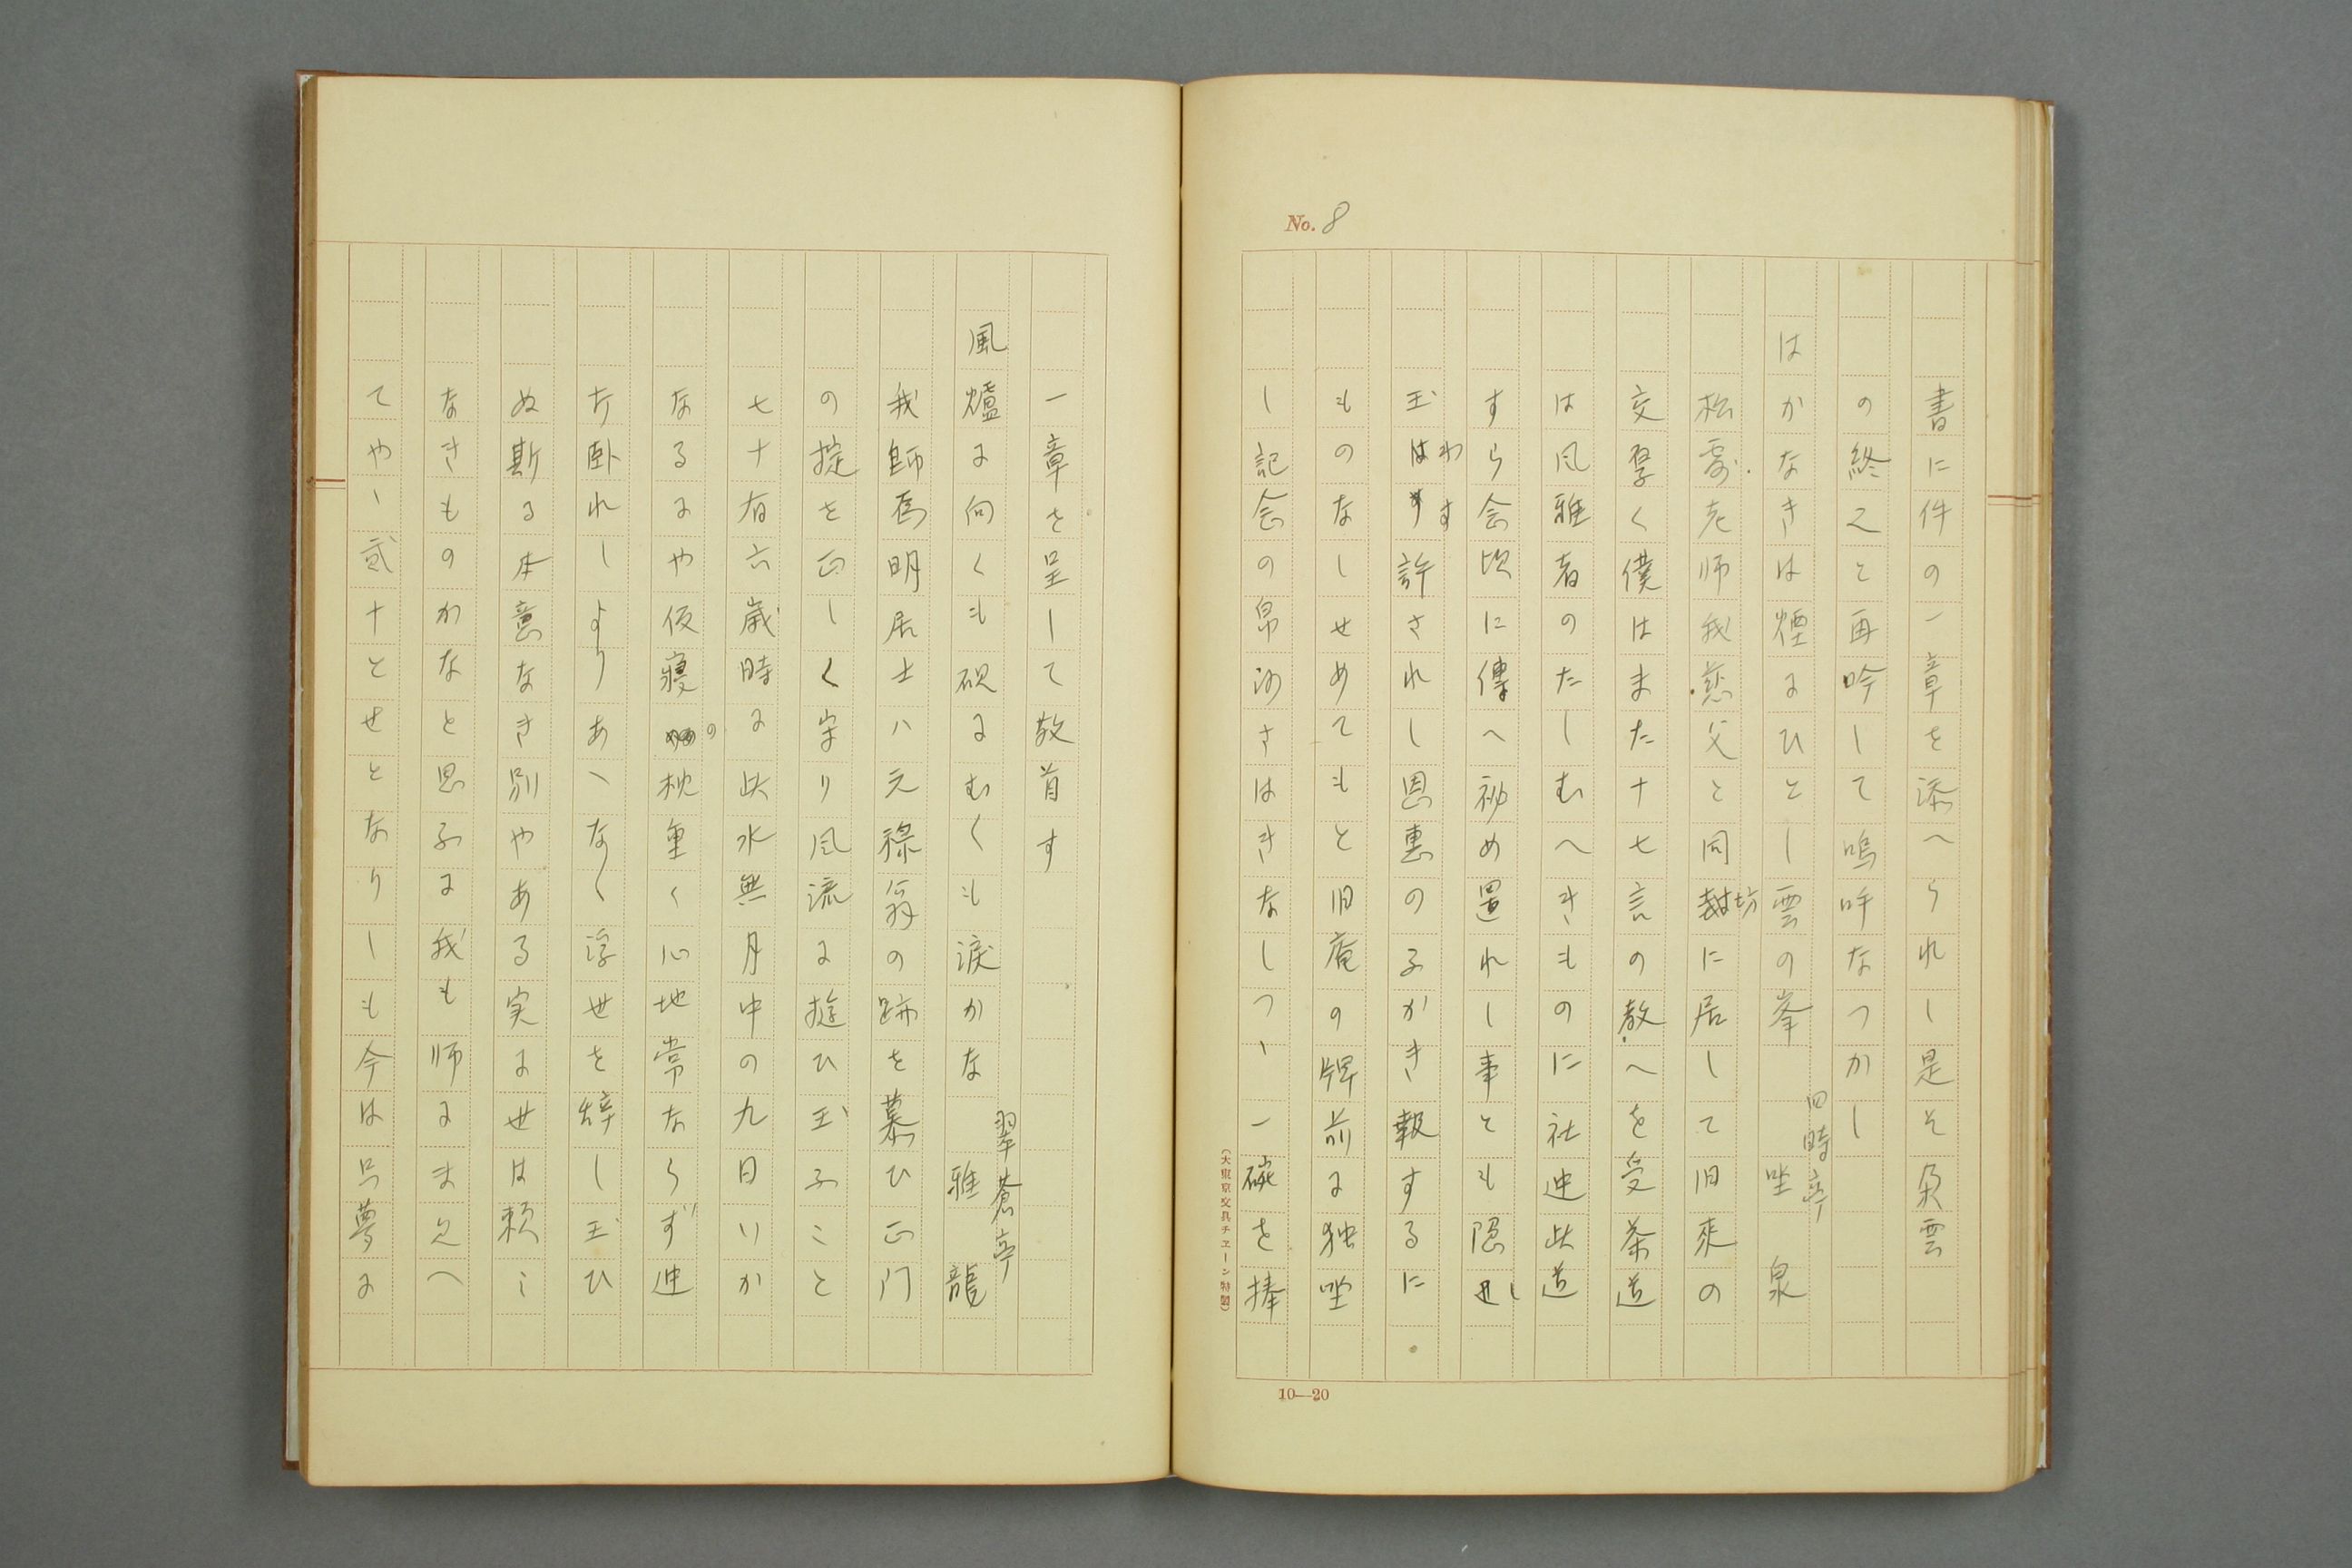 No. 8
書に件の一章を添へられし是そ負雲
の終えと再吟して嗚呼なつかし
はかなきは煙にひとし雲の峯
四時亭
坐泉
松露老師我慈父と同坊に居して旧來の
交厚く僕はまた十七言の教へを受茶道
は風雅者のたしむへきものに社迚此道
すら会頃に傳へ祕め置れし事とも隠し
玉わす許されし恩恵のふかき報するに
ものなしせめてもと旧庵の牌前に独坐
し記念の帛沙さはきなしつゝ一碗を捧
10—20
(大東京文具チエーン特製)
一章を呈して敬首す
風爐に向くも硯にむくも涙かな
翠蒼亭
雅龍
我師為明居士ハ元祿翁の跡を慕ひ正門
の掟を正しく守り風流に遊ひ玉ふこと
七十有六歳時に此水無月中の九日いか
なるにや仮寝の枕重く心地常ならず迚
打臥れしよりあへなく浮世を辞し玉ひ
ぬ斯る本意なき別やある実に世は頼ミ
なきものかなと思ふに我も師にまみへ
てやゝ貳十とせとなりしも今は只夢に